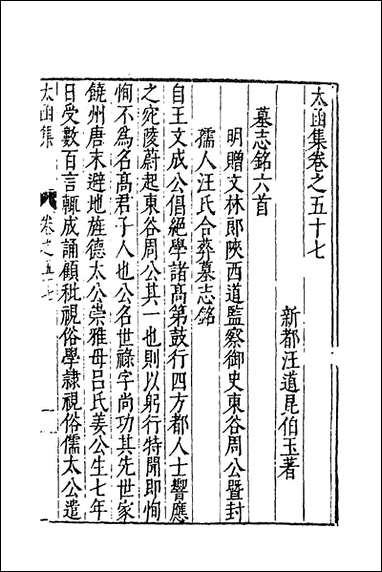 太函集卷之五十七
新都汪道昆伯玉著
墓志銘六首
明贈文林郎陝西道監察御史東谷周公暨封
孺人汪氏合葬墓志銘
自王文成公倡絕學諸高第鼓行四方都人士響應
之宛陵蔚起東谷周公其一也則以躬行特聞即恂
恂不為名高君子人也公名世祿字尚功其先世家
饒州唐末避地旌德太公崇雅母呂氏姜公生七年
日受數百言輒成誦顧秕視俗學隸視俗儒太公遣
太函集
卷之五十七
一